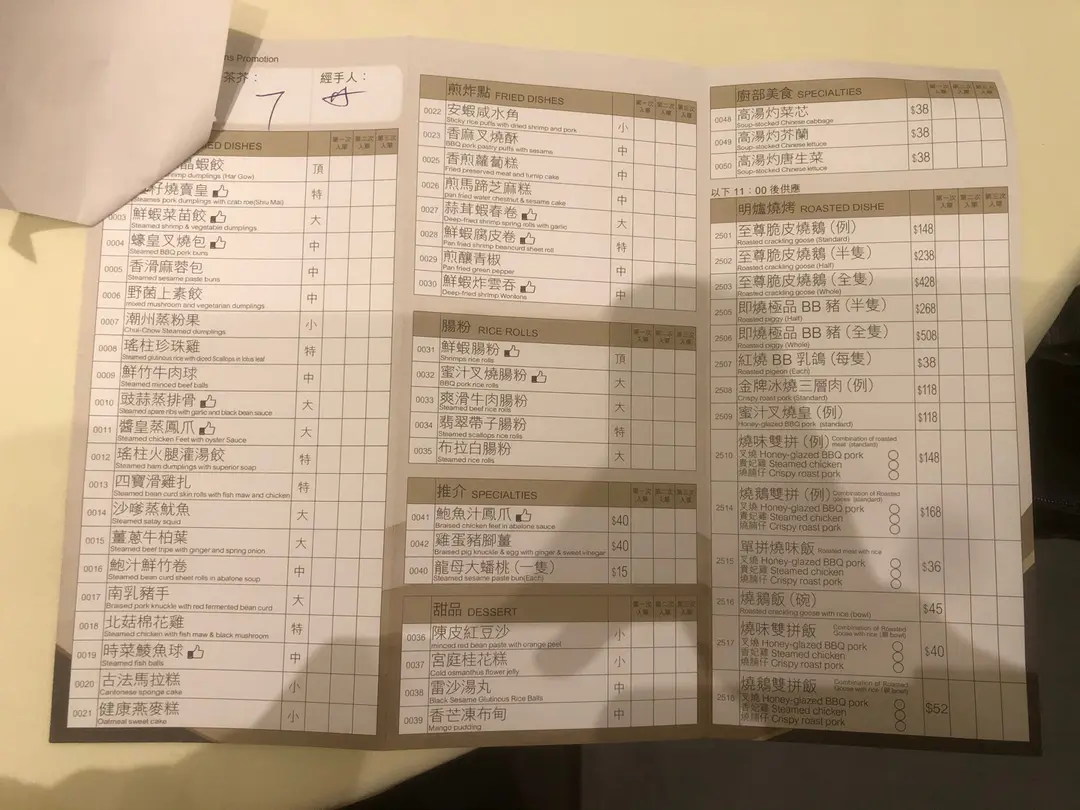 ns Promotion
茶芥：
經手人：
7
ED DISHES
第一次入單 第二次入單 第三次入單
晶蝦餃 頂
shrimp dumplings (Har Gow)
仔燒賣皇 特
Steames pork dumplings with crab roe(Shiu Mai)
0003 鮮蝦菜苗餃 大
Steamed shrimp & vegetable dumplings
0004 蠔皇叉燒包 中
Steamed BBQ pork buns
0005 香滑麻蓉包 中
Steamed sesame paste buns
0006 野菌上素餃 中
mixed mushroom and vegetarian dumplings
0007 潮州蒸粉果 小
Chui-Chow Steamed dumplings
0008 瑤柱珍珠雞 特
Steamed glutinous rice with diced Scallops in lotus leaf
0009 鮮竹牛肉球 中
Steamed minced beef balls
0010 豉蒜蒸排骨 大
Steamed spare ribs with garlic and black bean sauce
0011 醬皇蒸鳳爪 大
Steamed chicken Feet with oyster Sauce
0012 瑤柱火腿灌湯餃 特
Steamed ham dumplings with superior soap
0013 四寶滑雞扎 特
Steamed bean curd skin rolls with fish maw and chicken
0014 沙嗲蒸魷魚 大
Steamed satay squid
0015 薑蔥牛柏葉 大
Steamed beef trips with ginger and spring onion
0016 鮑汁鮮竹卷 中
Steamed bean curd sheet rolls in abalone soup
0017 南乳豬手 大
Braised pork knuckle with red fermented bean curd
0018 北菇棉花雞 特
Steamed chicken with fish maw & black mushroom
0019 時菜鯪魚球 中
Steamed fish balls
0020 古法馬拉糕 小
Cantonese sponge cake
0021 健康燕麥糕 小
Oatmeal sweet cake
煎炸點 FRIED DISHES
第一次入單 第二次入單 第三次入單
0022 安蝦咸水角 小
Sticky rice puffs with dried shrimp and pork
0023 香麻叉燒酥 中
BBQ pork pastry puffs with sesame
0025 香煎蘿蔔糕 中
Fried preserved meat and turnip cake
0026 煎馬蹄芝麻糕 中
pan fried water chestnut & sesame cake
0027 蒜茸蝦春卷 大
Deep-fried shrimp spring rolls with garlic
0028 鮮蝦腐皮卷 特
Pan fried shrimp beancurd sheet roll
0029 煎釀青椒 中
Pan fried green pepper
0030 鮮蝦炸雲吞 中
Deep-fried shrimp Wontans
腸粉 RICE ROLLS
第一次入單 第二次入單 第三次入單
0031 鮮蝦腸粉 頂
Shrimps rice rolls
0032 蜜汁叉燒腸粉 大
BBQ pork rice rolls
0033 爽滑牛肉腸粉 大
Steamed beef rice rolls
0034 翡翠帶子腸粉 特
Steamed scallops rice rolls
0035 布拉白腸粉 大
Steamed rice rolls
推介 SPECIALTIES
第一次入單 第二次入單 第三次入單
0041 鮑魚汁鳳爪 $40
Braised chicken feet in abalone sauce
0042 雞蛋豬腳薑 $40
Braised pig knuckle & egg with ginger & sweet vinegar
0040 龍母大蟠桃 (一隻) $15
Steamed sesame paste bun(Each)
甜品 DESSERT
第一次入單 第二次入單 第三次入單
0036 陳皮紅豆沙 小
minced red bean paste with orange peel
0037 宮庭桂花糕 小
Cold osmanthus flower jelly
0038 雷沙湯丸 中
Black Sesame Glutinous Rice Balls
0039 香芒凍布甸 中
Mango pudding
廚部美食 SPECIALTIES
第一次入單 第二次入單 第三次入單
0048 高湯灼菜芯 $38
Soup-stocked Chinese cabbage
0049 高湯灼芥蘭 $38
Soup-stocked Chinese lettuce
0050 高湯灼唐生菜 $38
Soup-stocked Chinese lettuce
以下 11：00 後供應
明爐燒烤 ROASTED DISHE
第一次入單 第二次入單 第三次入單
2501 至尊脆皮燒鵝 (例) $148
Roasted crackling goose (Standard)
2502 至尊脆皮燒鵝 (半隻) $238
Roasted crackling goose (Half)
2503 至尊脆皮燒鵝 (全隻) $428
Roasted crackling goose (Whole)
2505 即燒極品 BB 豬 (半隻) $268
Roasted piggy (Half)
2506 即燒極品 BB 豬 (全隻) $508
Roasted piggy (Whole)
2507 紅燒 BB 乳鴿 (每隻) $38
Roasted pigeon (Each)
2508 金牌冰燒三層肉 (例) $118
Crispy roast pork (Standard)
2509 蜜汁叉燒皇 (例) $118
Honey-glazed BBQ pork (standard)
燒味雙拼 (例) Combination of roasted meat (standard)
2510 叉燒 Honey-glazed BBQ pork $148
貴妃雞 Steamed chicken
燒腩仔 Crispy roast pork
燒鵝雙拼 (例) Combination of Roasted goose (standard)
2514 叉燒 Honey-glazed BBQ pork $168
貴妃雞 Steamed chicken
燒腩仔 Crispy roast pork
單拼燒味飯 Roasted meat with rice
2515 叉燒 Honey-glazed BBQ pork $36
貴妃雞 Steamed chicken
燒腩仔 Crispy roast pork
2516 燒鵝飯 (碗) $45
Roasted crackling goose with rice (bowl)
燒味雙拼飯 Combination of Roasted Goose with rice
2517 叉燒 Honey-glazed BBQ pork $40
貴妃雞 Steamed chicken
燒腩仔 Crispy roast pork
燒鵝雙拼飯 Combination of Roasted Goose with rice
2518 叉燒 Honey-glazed BBQ pork $52
貴妃雞 Steamed chicken
燒腩仔 Crispy roast pork